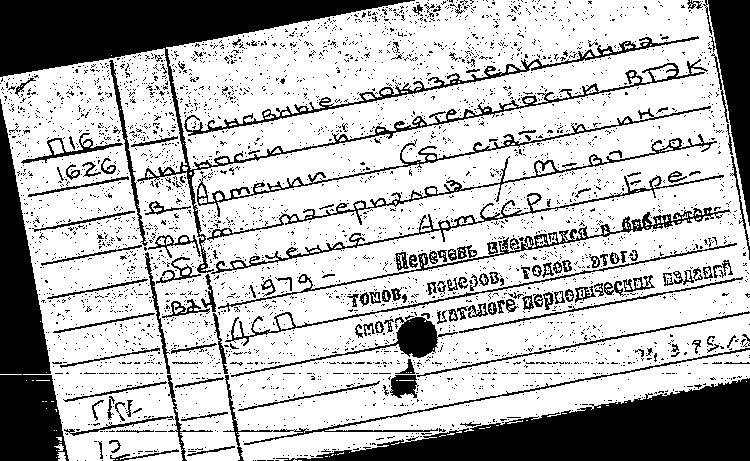 Основные показатели инва-
П16
1626
лидности и деятельности ВТЭК
в Армении. Сб. стат. и ин-
форм. материалов / М-во соц.
обеспечения АрмССР. - Ере-
ван, 1979 -
ДСП
Перечень имеющихся в библиотеке
томов, номеров, годов этого
смотри в каталоге периодических изданий
12